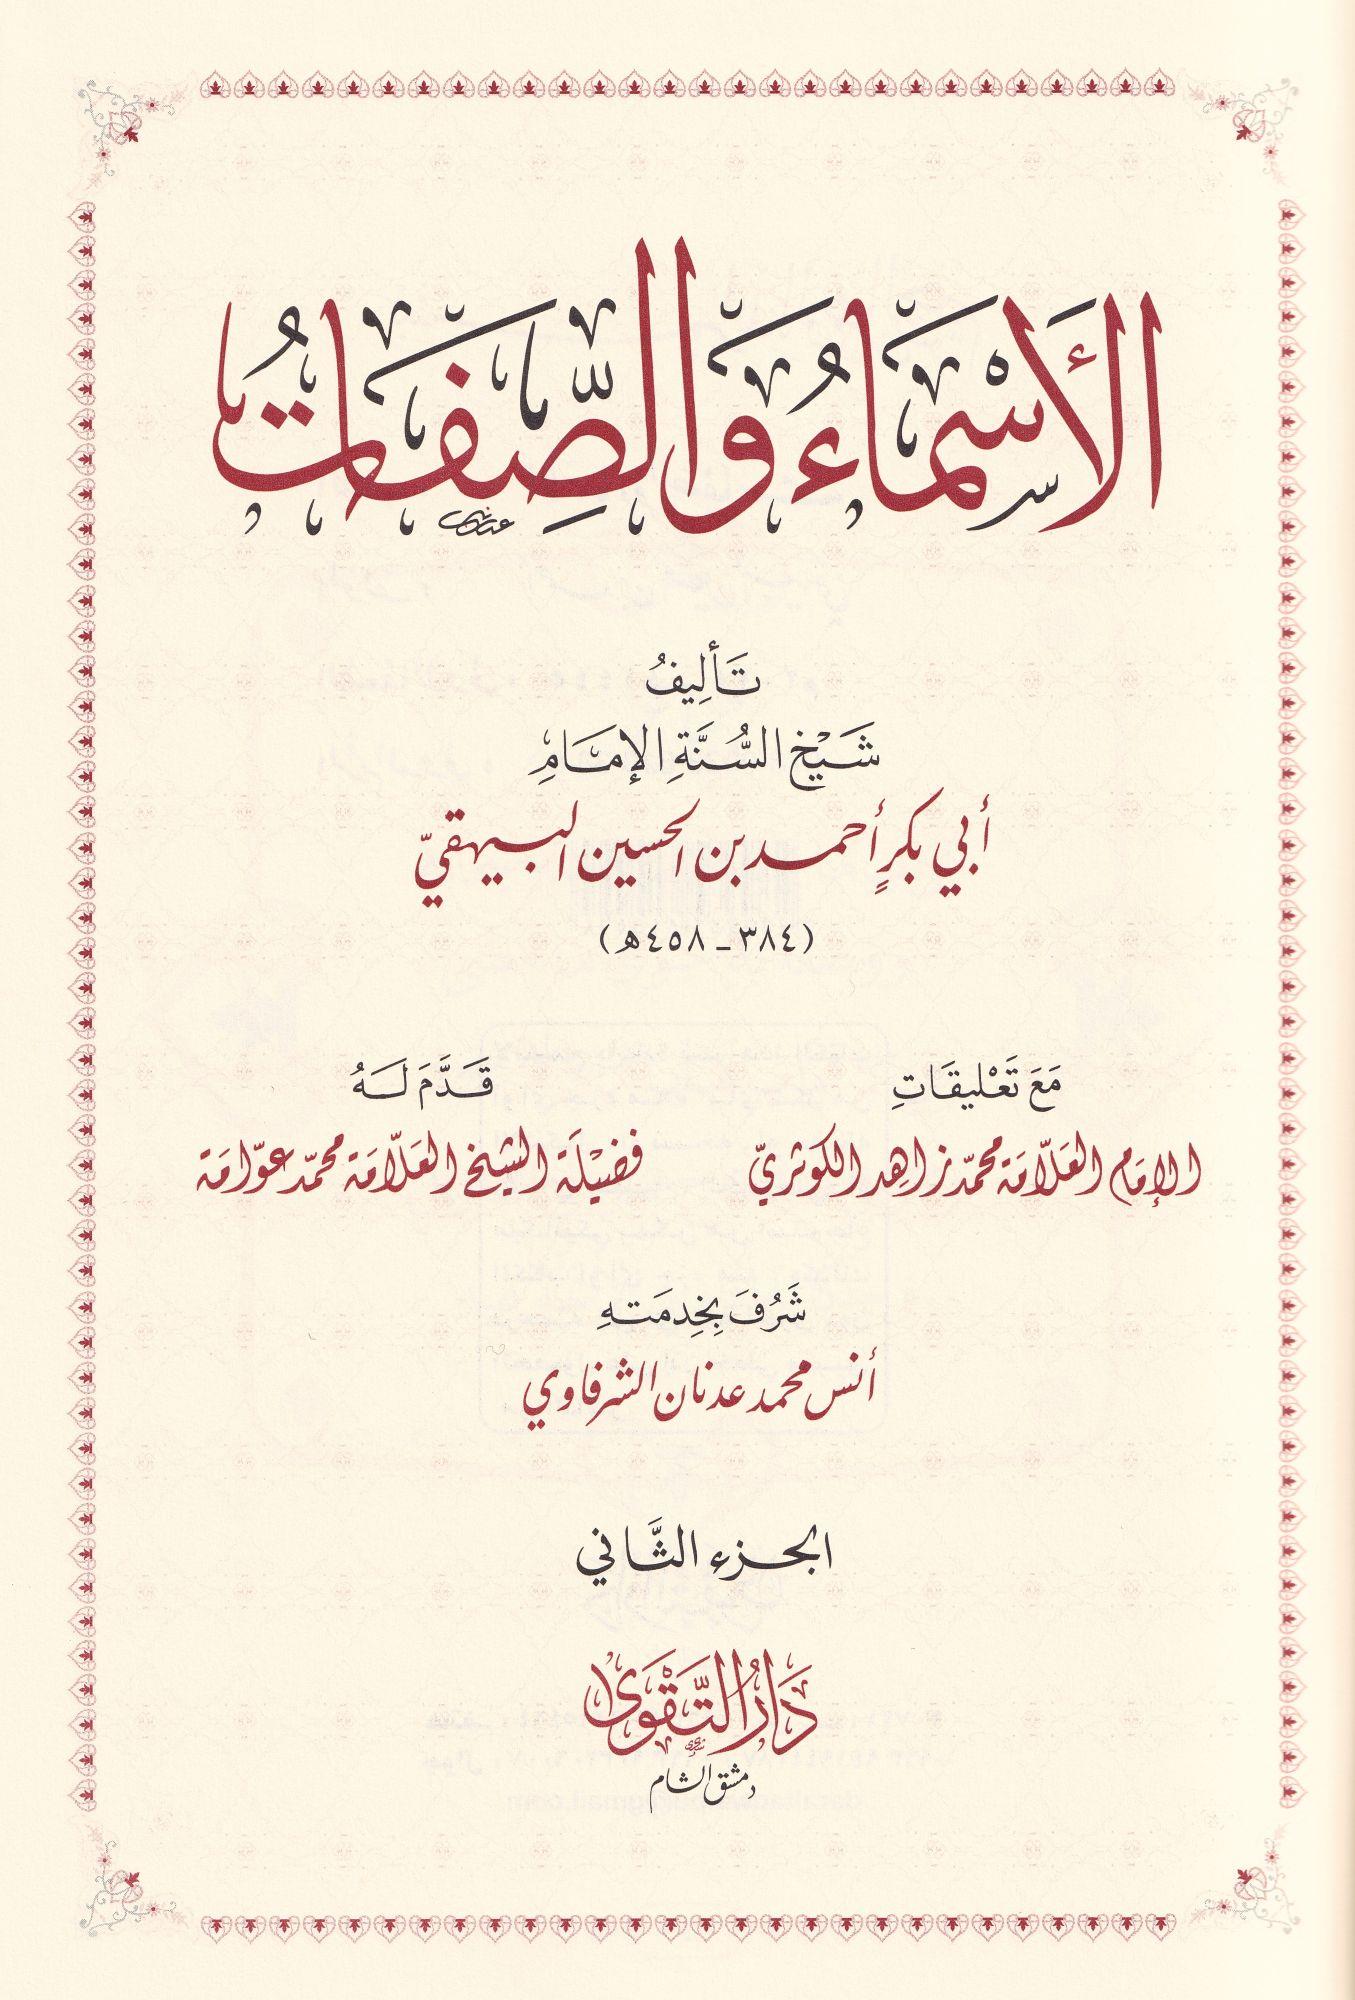 الأَسْمَاءُ وَالصِّفَاتُ
تَأْلِيفُ
شَيْخِ السُّنَّةِ الإِمَامِ
أبي بكرٍ أحمد بن الحسين البيهقيّ
(٣٨٤ ـ ٤٥٨ هـ)
مَعَ تَعْلِيقَاتِ
الإمام العلّامة محمّد زاهد الكوثريّ
قَدَّمَ لَهُ
فضيلة الشيخ العلّامة محمّد عوّامة
شَرُفَ بِخِدمَتِهِ
أنس محمد عدنان الشرفاوي
الجزء الثَّاني
دَارُ التَّقْوَىٰ
دمشق الشام